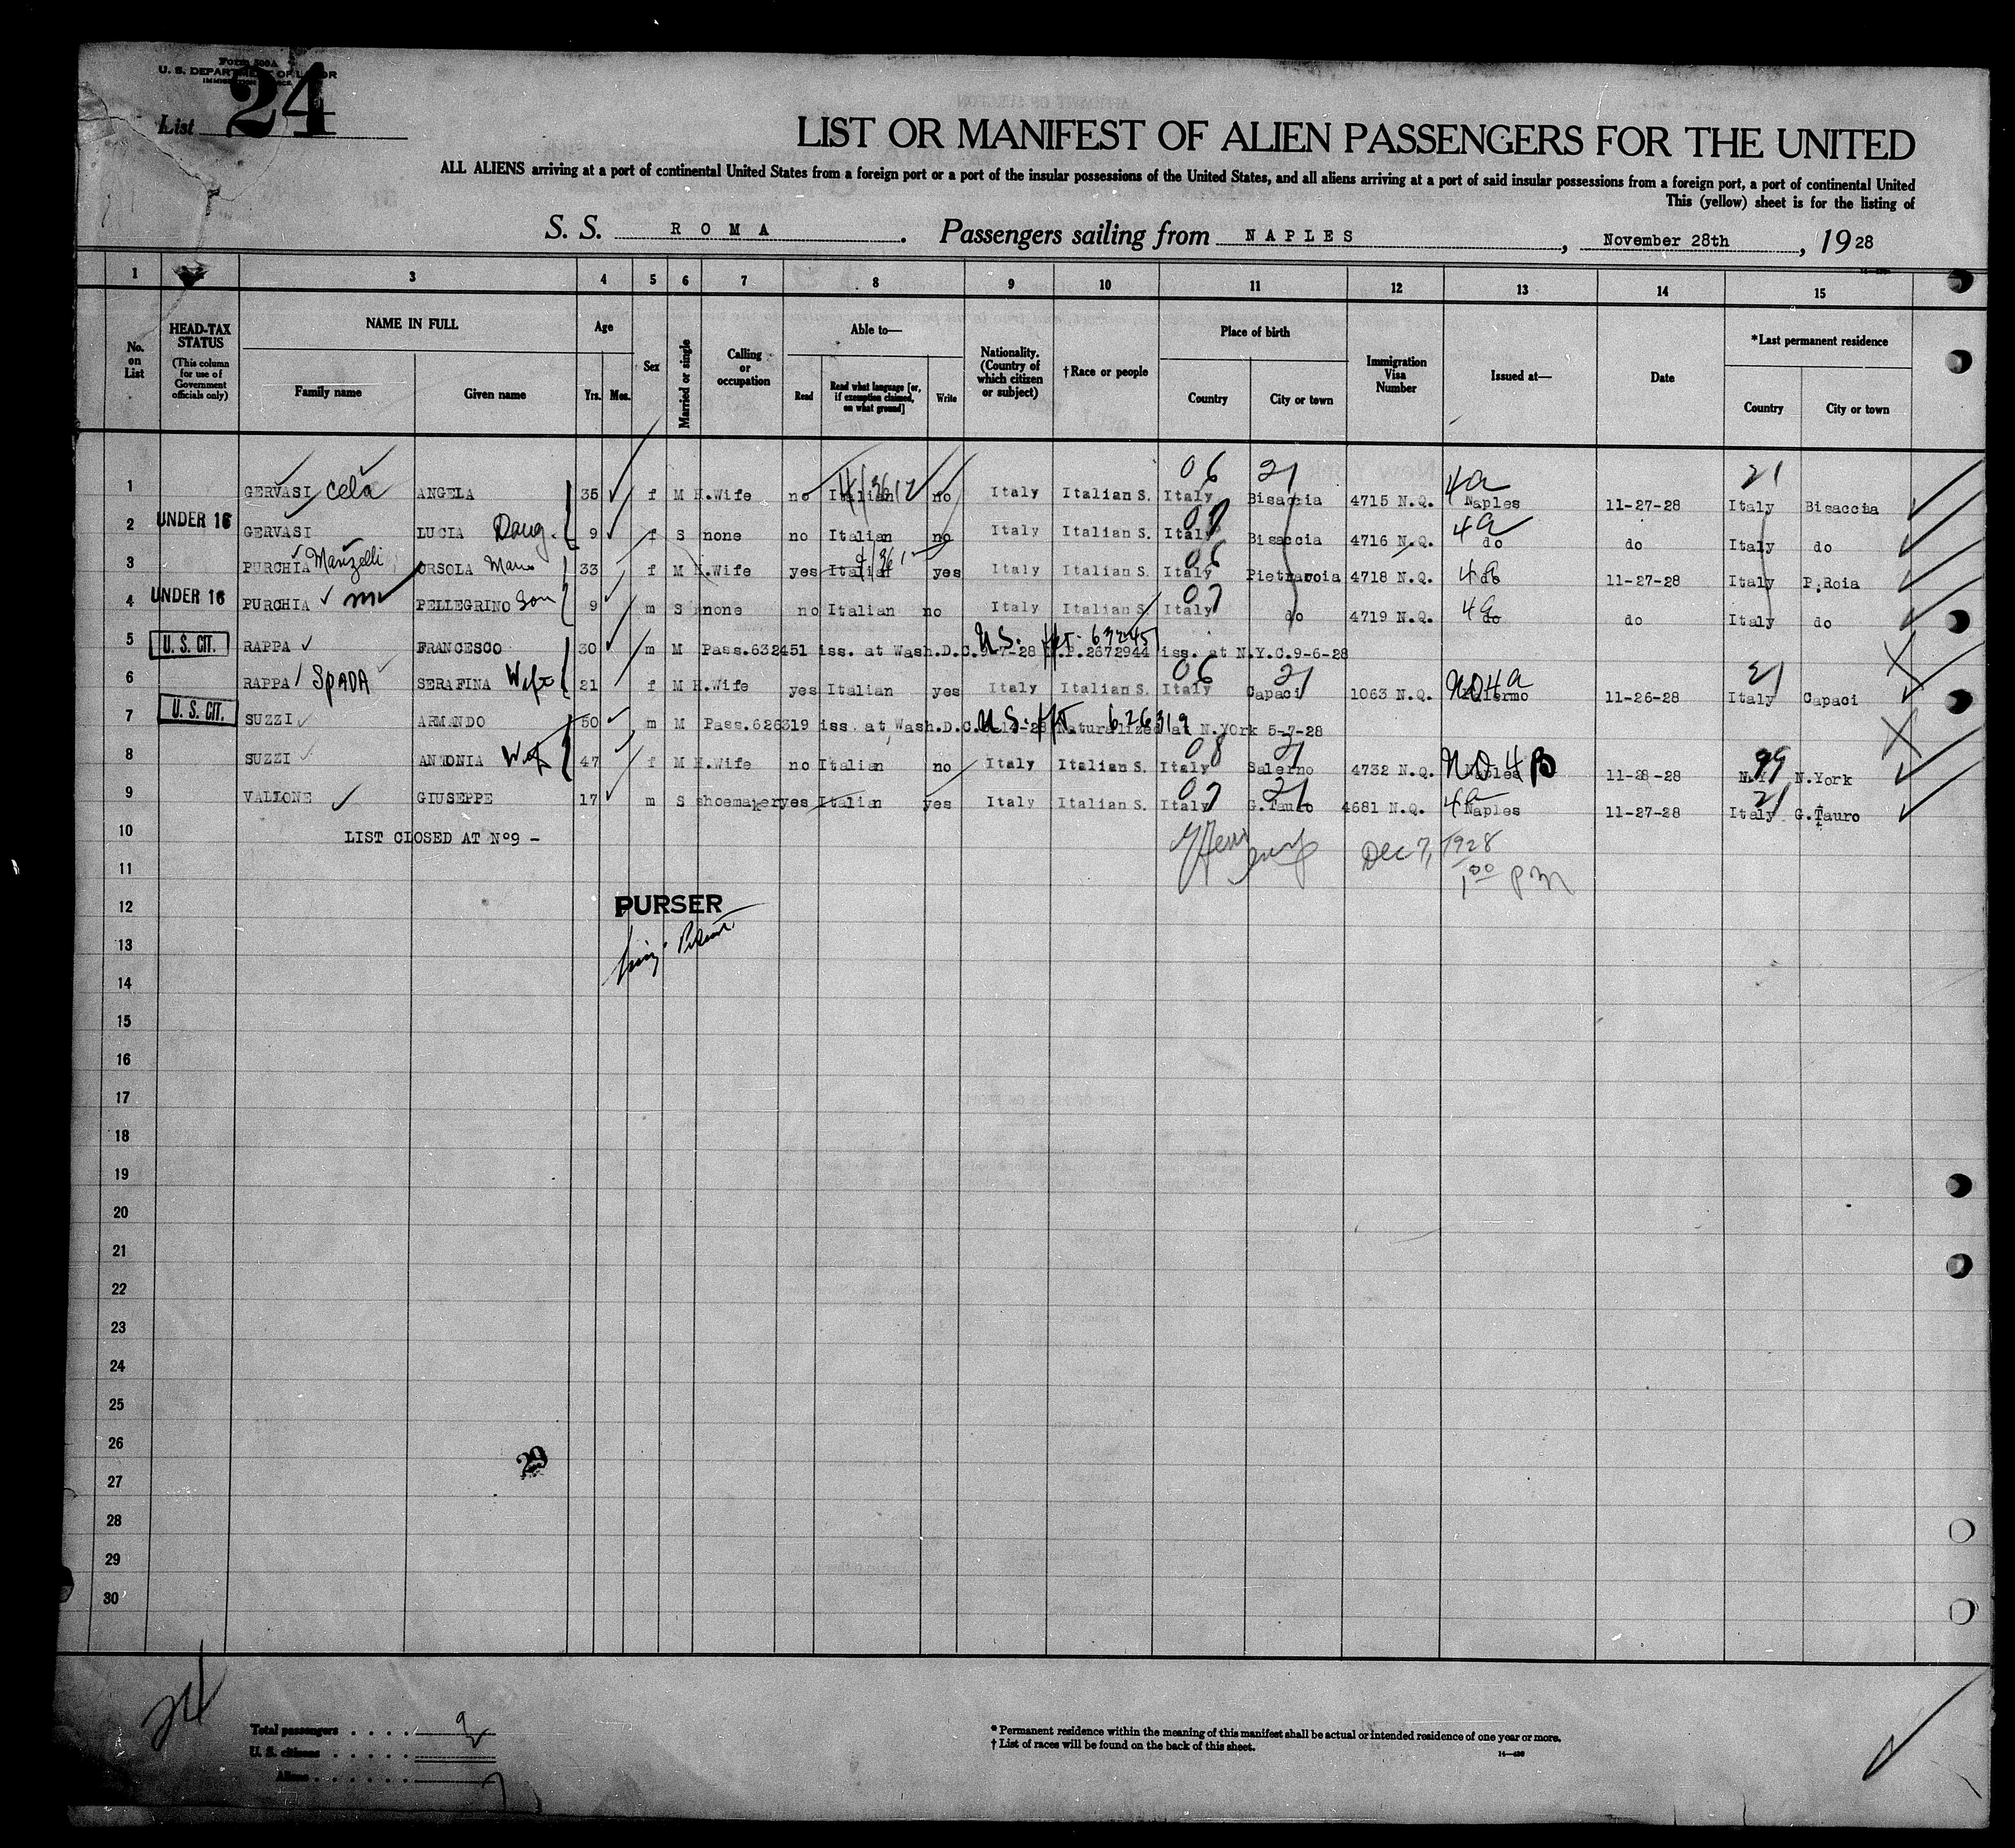 Form 500A
U. S. DEPARTMENT OF LABOR
List 24
LIST OR MANIFEST OF ALIEN PASSENGERS FOR THE UNITED
ALL ALIENS arriving at a port of continental United States from a foreign port or a port of the insular possessions of the United States, and all aliens arriving at a port of said insular possessions from a foreign port, a port of continental United
This (yellow) sheet is for the listing of
S. S. ROMA. Passengers sailing from NAPLES, November 28th, 1928
1 3 4 5 6 7 8 9 10 11 12 13 14 15
No. on List
HEAD-TAX STATUS (This column for use of Government officials only)
NAME IN FULL Family name Given name
Age Yrs. Mos.
Sex
Married or single
Calling or occupation
Able to— Read Read what language [or, if exemption claimed, on what ground] Write
Nationality. (Country of which citizen or subject)
†Race or people
Place of birth Country City or town
Immigration Visa Number
Issued at—
Date
*Last permanent residence Country City or town
06 21 4a 21
1 GERVASI Cela ANGELA 35 f M H.Wife no Italian no Italy Italian S. Italy Bisaccia 4715 N.Q. Naples 11-27-28 Italy Bisaccia
2 UNDER 16 GERVASI LUCIA Daug. 9 f S none no Italian no Italy Italian S. Italy Bisaccia 4716 N.Q. 4a do do Italy do
3 PURCHIA Manzelli ORSOLA 33 f M H.Wife yes Italian yes Italy Italian S. Italy 06 Pietraroia 4718 N.Q. 4a do 11-27-28 Italy P.Roia
4 UNDER 16 PURCHIA PELLEGRINO Son 9 m S none no Italian no Italy Italian S. Italy 07 do 4719 N.Q. 4a do do Italy do
5 U. S. CIT. RAPPA FRANCESCO 30 m M Pass.632451 iss. at Wash.D.C. U.S. 632451 2672944 iss. at N.Y.C.9-6-28
6 RAPPA SPADA SERAFINA Wife 21 f M H.Wife yes Italian yes Italy Italian S. Italy 06 Capaci 21 1063 N.Q. ND4a Palermo 11-26-28 Italy 21 Capaci
7 U. S. CIT. SUZZI ARMANDO 50 m M Pass.626319 iss. at Wash.D.C. U.S. 626319 Naturalized at N.York 5-7-28
8 SUZZI ANTONIA Wife 47 f M H.Wife no Italian no Italy Italian S. Italy 08 Salerno 21 4732 N.Q. Naples ND 4B 11-28-28 N.Y. 99 N.York
9 VALLONE GIUSEPPE 17 m S shoemaker yes Italian yes Italy Italian S. Italy 07 G.Tauro 21 4681 N.Q. 4a Naples 11-27-28 Italy 21 G.Tauro
10 LIST CLOSED AT Nº9 -
Dec 7, 1928
1 00 pm
11
12 PURSER
13
14
15
16
17
18
19
20
21
22
23
24
25
26
29
27
28
29
30
24
Total passengers . . . . 9
U. S. citizens . . . . .
Aliens . . . . . . 7
* Permanent residence within the meaning of this manifest shall be actual or intended residence of one year or more.
† List of races will be found on the back of this sheet.
14—430